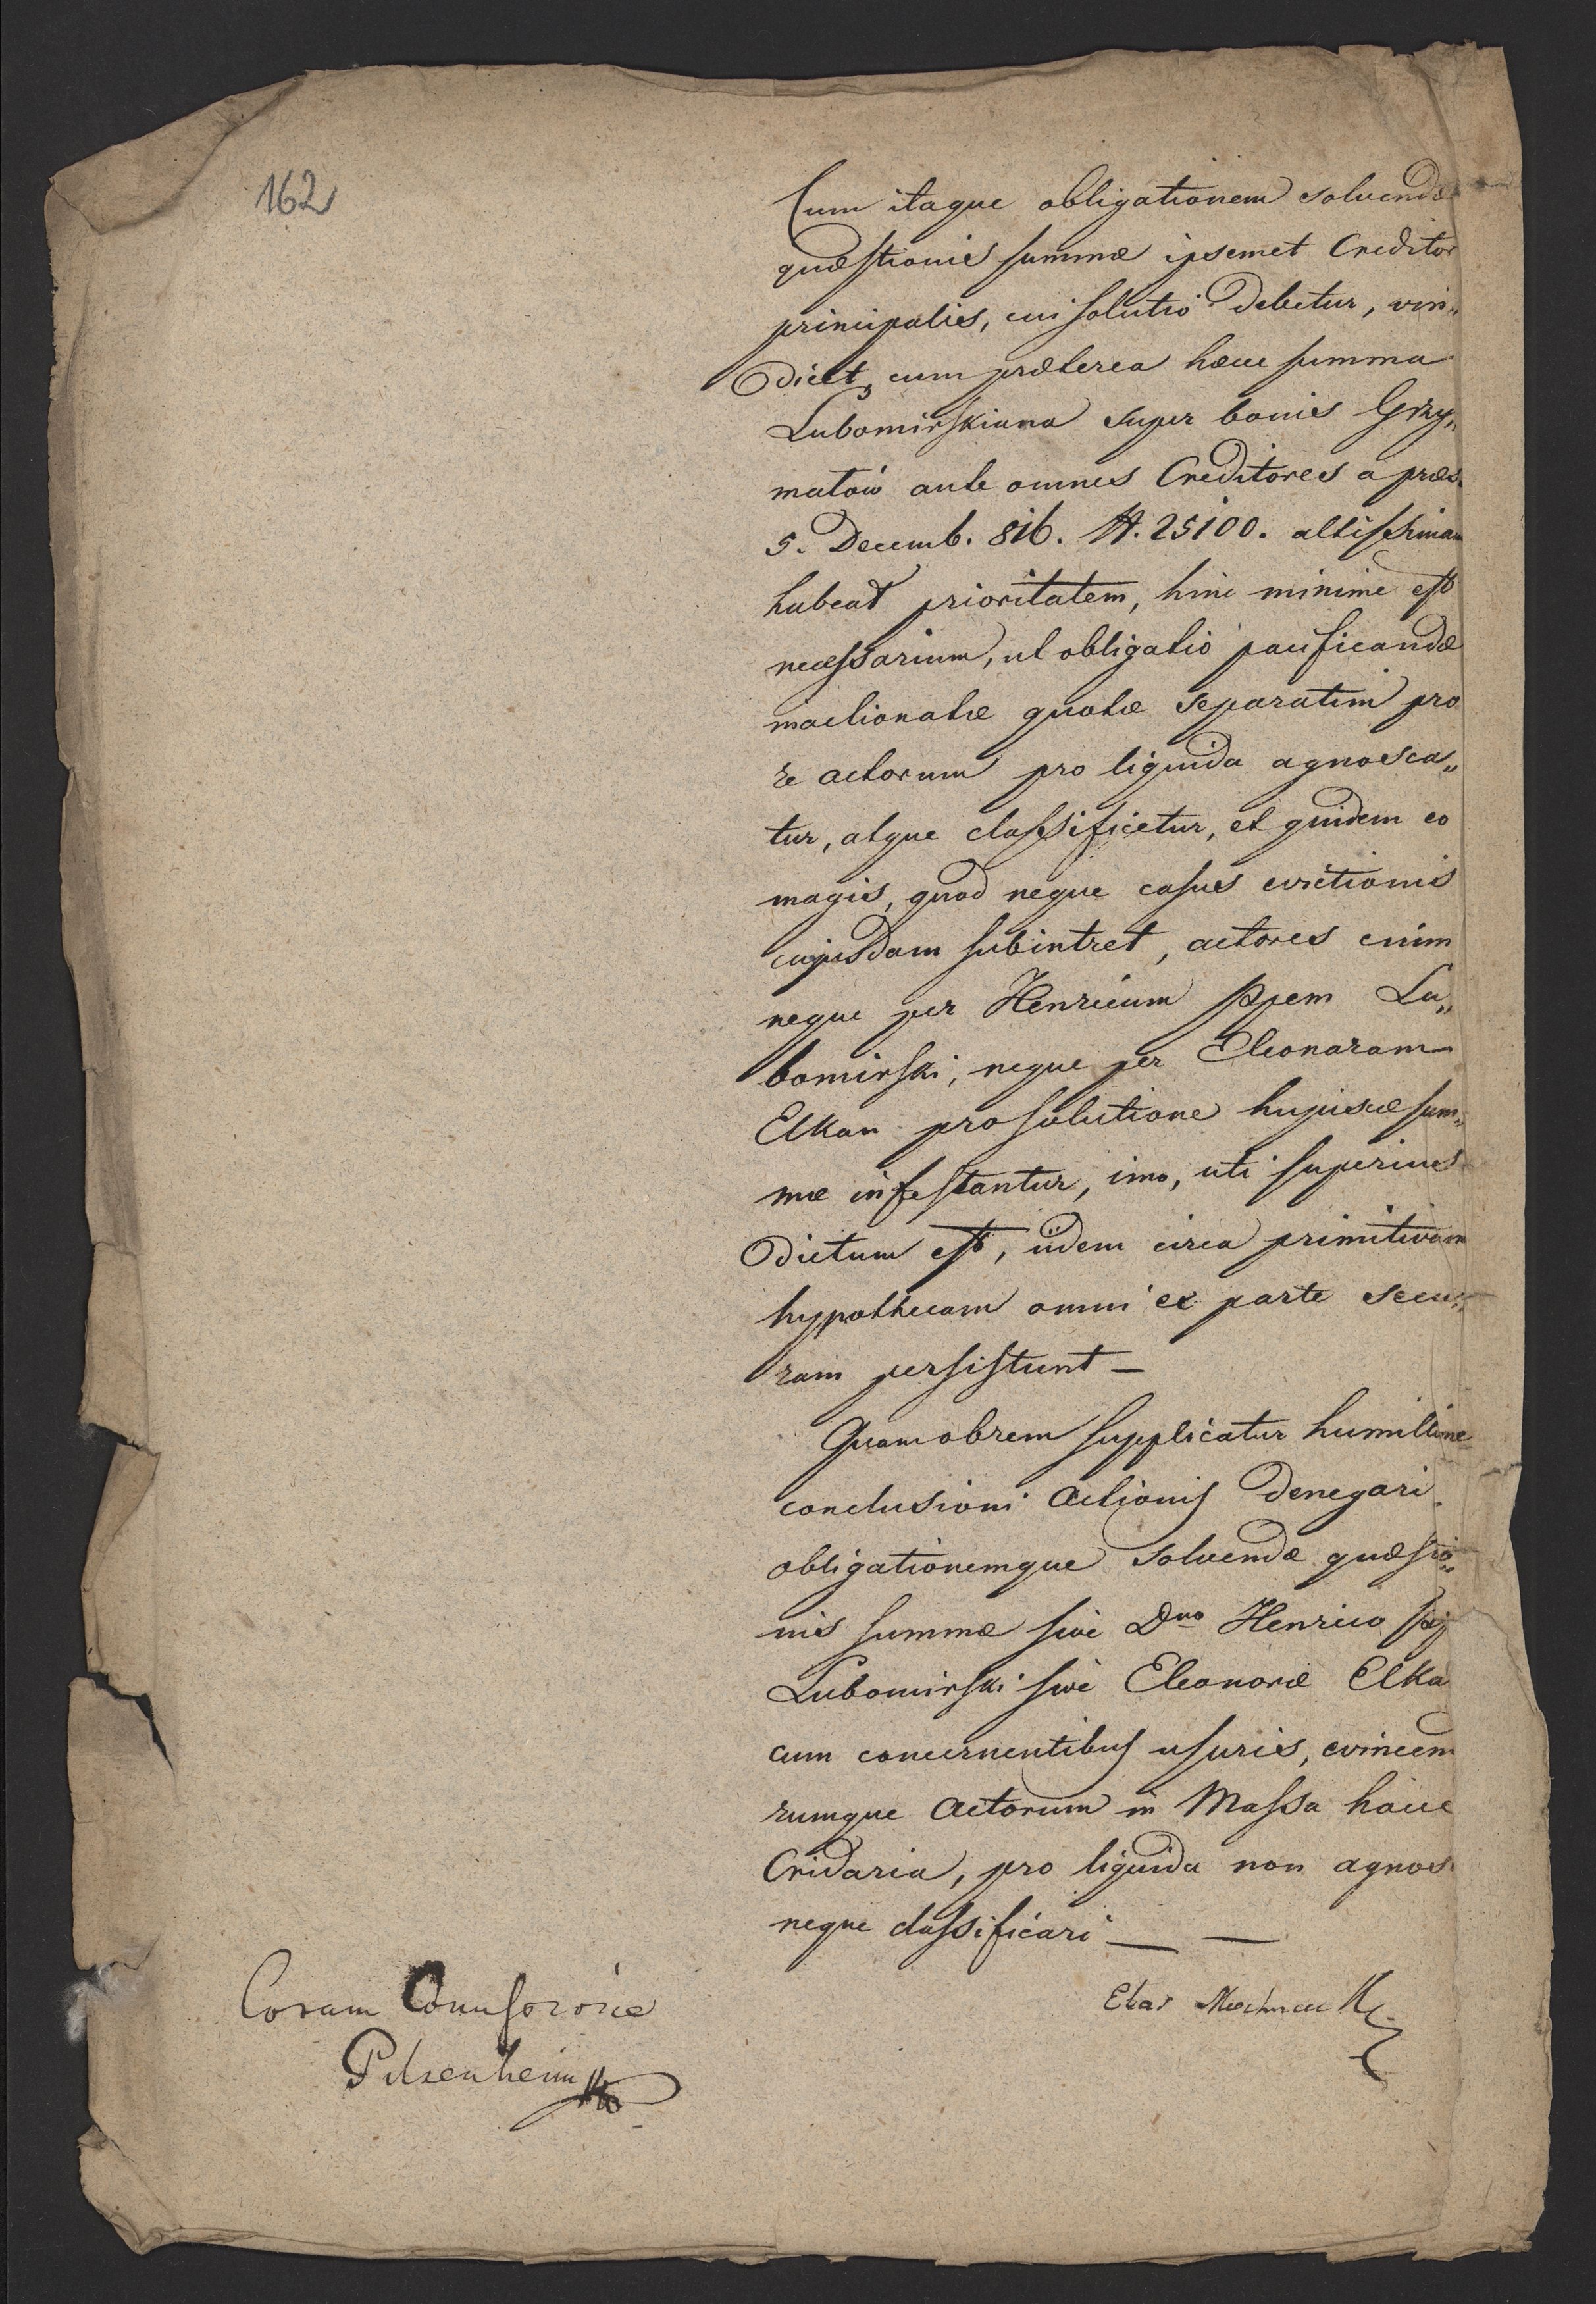 162
Cum itaque obligationem solvendæ
quæstionis summæ ipsemet Creditor
principalis, cui solutio debetur, vin„
dicet, cum præterea hæcce summa
Lubomirskiana super bonis Grzy„
matow ante omnes Creditores a præs.
5. Decemb. 816. N. 25100. altissimam
habeat prioritatem, hinc minime est
necessarium, ut obligatio pacificandæ
mactionatæ quotæ separatim pro
re actorum pro liquida agnosca„
tur, atque classificetur, et quidem eo
magis, quod neque casus evictionis
cujusdam subintret, actores enim
neque per Henricum Ppem Lu„
bomirski, neque per Eleonaram
Elkan pro solutione hujusce sum„
mæ infestantur, imo, uti superius
dictum est, iidem circa primitivam
hypothecam omni ex parte secu„
ram persistunt —
Quamobrem supplicatur humillime
conclusioni Actionis denegari
obligationemque solvendæ quæstio„
nis summæ sive Dno Henrico
Lubomirski sive Eleonoræ Elka
cum concernentibus usuris, evincen
rumque Actorum in Massa hacce
Cridaria, pro liquida non agnos
neque classificari — —
Coram